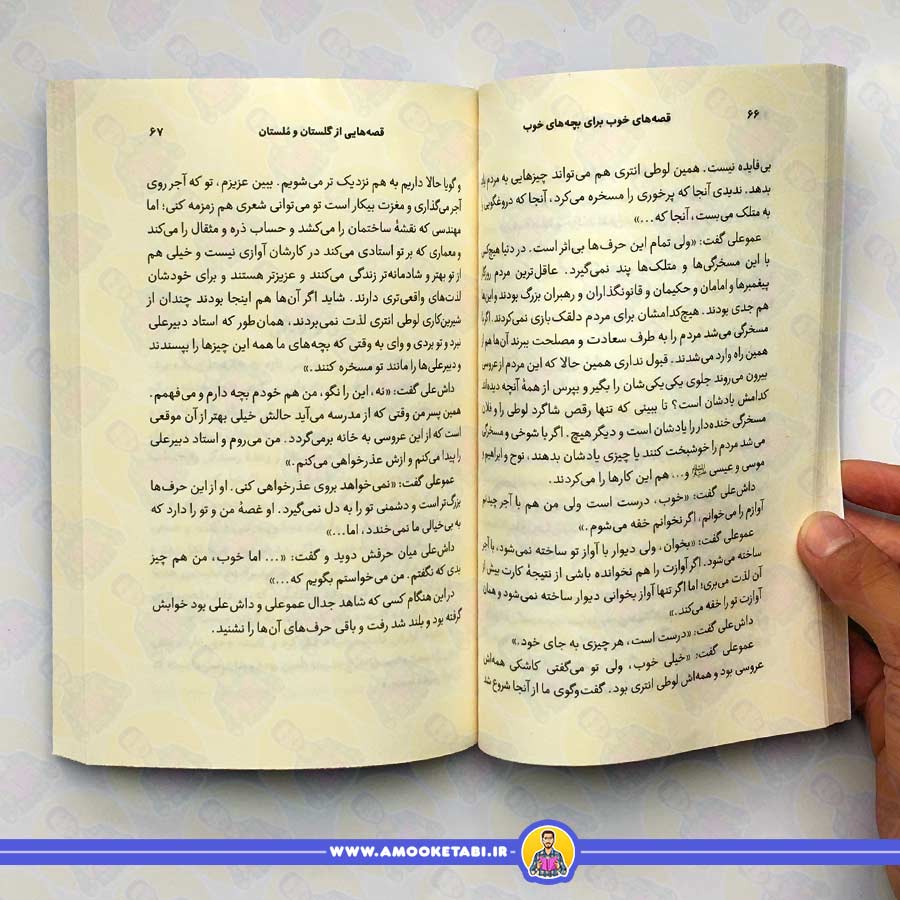 ۶۶
قصه‌های خوب برای بچه‌های خوب
بی‌فایده نیست. همین لوطی انتری هم می‌تواند چیزهایی به مردم
بدهد. ندیدی آنجا که پرخوری را مسخره می‌کرد، آنجا که دروغگویی
به متلک می‌بست، آنجا که...»
عموعلی گفت: «ولی تمام این حرف‌ها بی‌اثر است. در دنیا هیچ‌کس
با این مسخرگی‌ها و متلک‌ها پند نمی‌گیرد. عاقل‌ترین مردم
پیغمبرها و امامان و حکیمان و قانونگذاران و رهبران بزرگ بودند
هم جدی بودند. هیچ‌کدامشان برای مردم دلقک‌بازی نمی‌کردند. اگر با
مسخرگی می‌شد مردم را به طرف سعادت و مصلحت ببرند آن‌ها هم از
همین راه وارد می‌شدند. قبول نداری همین حالا که این مردم از عروسی
بیرون می‌روند جلوی یکی‌یکی‌شان را بگیر و بپرس از همهٔ آنچه دیده‌اند
کدامش یادشان است؟ تا ببینی که تنها رقص شاگرد لوطی را و فلان
مسخرگی خنده‌دار را یادشان است و دیگر هیچ. اگر با شوخی و مسخرگی
می‌شد مردم را خوشبخت کنند یا چیزی یادشان بدهند، نوح و ابراهیم و
موسی و عیسی و... هم این کارها را می‌کردند.
داش‌علی گفت: «خوب، درست است ولی من هم با آجر چیدنم
آوازم را می‌خوانم، اگر نخوانم خفه می‌شوم.»
عموعلی گفت: «بخوان، ولی دیوار با آواز تو ساخته نمی‌شود، با آجر
ساخته می‌شود. اگر آوازت را هم نخوانده باشی از نتیجهٔ کارت بیش از
آن لذت می‌بری؛ اما اگر تنها آواز بخوانی دیوار ساخته نمی‌شود و همان
آوازت تو را خفه می‌کند.»
داش‌علی گفت: «درست است، هر چیزی به جای خود.»
عموعلی گفت: «خیلی خوب، ولی تو می‌گفتی کاشکی همه‌اش
عروسی بود و همه‌اش لوطی انتری بود. گفت‌وگوی ما از آنجا شروع شد
قصه‌هایی از گلستان و مُلستان
۶۷
و گویا حالا داریم به هم نزدیک تر می‌شویم. ببین عزیزم، تو که آجر روی
آجر می‌گذاری و مغزت بیکار است تو می‌توانی شعری هم زمزمه کنی؛ اما
مهندسی که نقشهٔ ساختمان را می‌کشد و حساب ذره و مثقال را می‌کند
و معماری که بر تو استادی می‌کند در کارشان آوازی نیست و خیلی هم
از تو بهتر و شادمانه‌تر زندگی می‌کنند و عزیزتر هستند و برای خودشان
لذت‌های واقعی‌تری دارند. شاید اگر آن‌ها هم اینجا بودند چندان از
شیرین‌کاری لوطی انتری لذت نمی‌بردند، همان‌طور که استاد دبیرعلی
نبرد و تو بردی و وای به وقتی که بچه‌های ما همه این چیزها را بپسندند
و دبیرعلی‌ها را مانند تو مسخره کنند.»
داش‌علی گفت: «نه، این را نگو، من هم خودم بچه دارم و می‌فهمم.
همین پسر من وقتی که از مدرسه می‌آید حالش خیلی بهتر از آن موقعی
است که از این عروسی به خانه برمی‌گردد. من می‌روم و استاد دبیرعلی
را پیدا می‌کنم و ازش عذرخواهی می‌کنم.»
عموعلی گفت: «نمی‌خواهد بروی عذرخواهی کنی. او از این حرف‌ها
بزرگ‌تر است و دشمنی تو را به دل نمی‌گیرد. او غصهٔ من و تو را دارد که
به بی‌خیالی ما نمی‌خندد، اما...»
داش‌علی میان حرفش دوید و گفت: «... اما خوب، من هم چیز
بدی که نگفتم. من می‌خواستم بگویم که...»
در این هنگام کسی که شاهد جدال عموعلی و داش‌علی بود خوابش
گرفته بود و بلند شد رفت و باقی حرف‌های آن‌ها را نشنید.
WWW.AMOOKETABI.IR